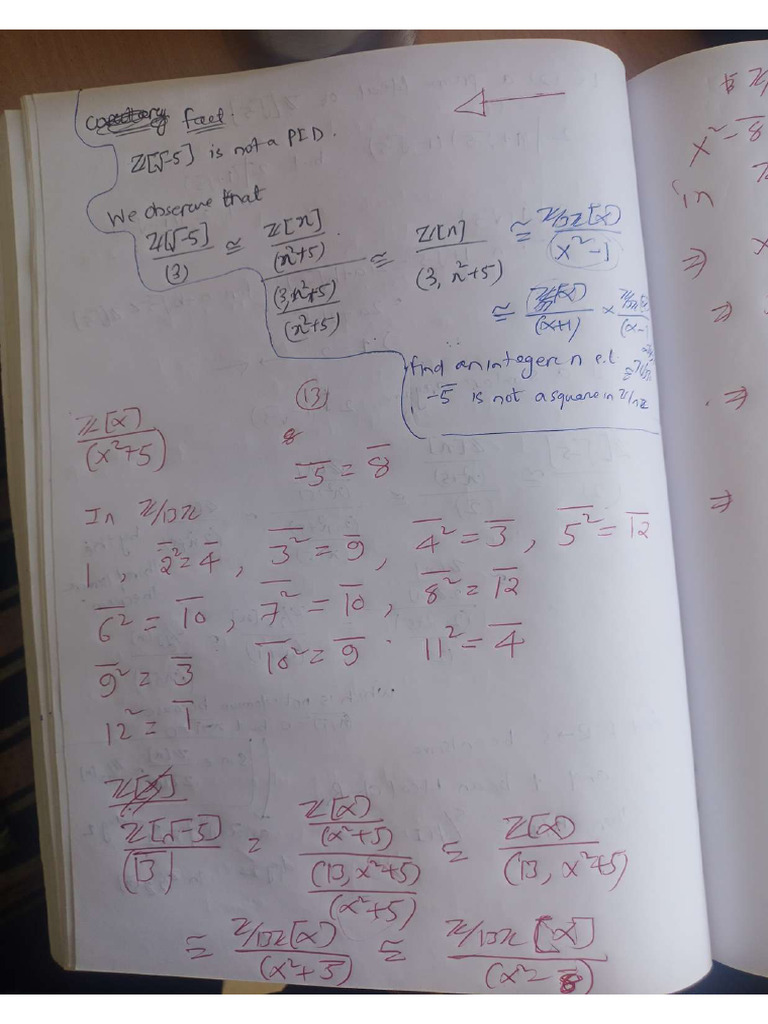 fact.
Z[√-5] is not a PID.
We observe that
Z[√-5]/(3) ≅ (Z[x]/(x²+5))/((3, x²+5)/(x²+5)) ≅ Z[x]/(3, x²+5) ≅ Z/3Z[x]/(x²-1)
≅ Z/3Z[x]/(x+1) × Z/3Z[x]/(x-1)
find an integer n s.t
-5̅ is not a square in Z/nZ
Z[x]/(x²+5)
(13)
8
-5̅ = 8̅
In Z/13Z
1, 2̅² = 4̅, 3̅² = 9̅, 4̅² = 3̅, 5̅² = 12̅
6̅² = 10̅, 7̅² = 10̅, 8̅² = 12̅
9̅² = 3̅ 10̅² = 9̅ . 11² = 4̅
12² = 1̅
Z[√-5]/(13) = (Z[x]/(x²+5))/((13, x²+5)/(x²+5)) ≅ Z[x]/(13, x²+5)
≅ Z/13Z[x]/(x²+5̅) ≅ Z/13Z[x]/(x²-8)
x²-8̅
in
⇒ x
⇒
⇒
⇒